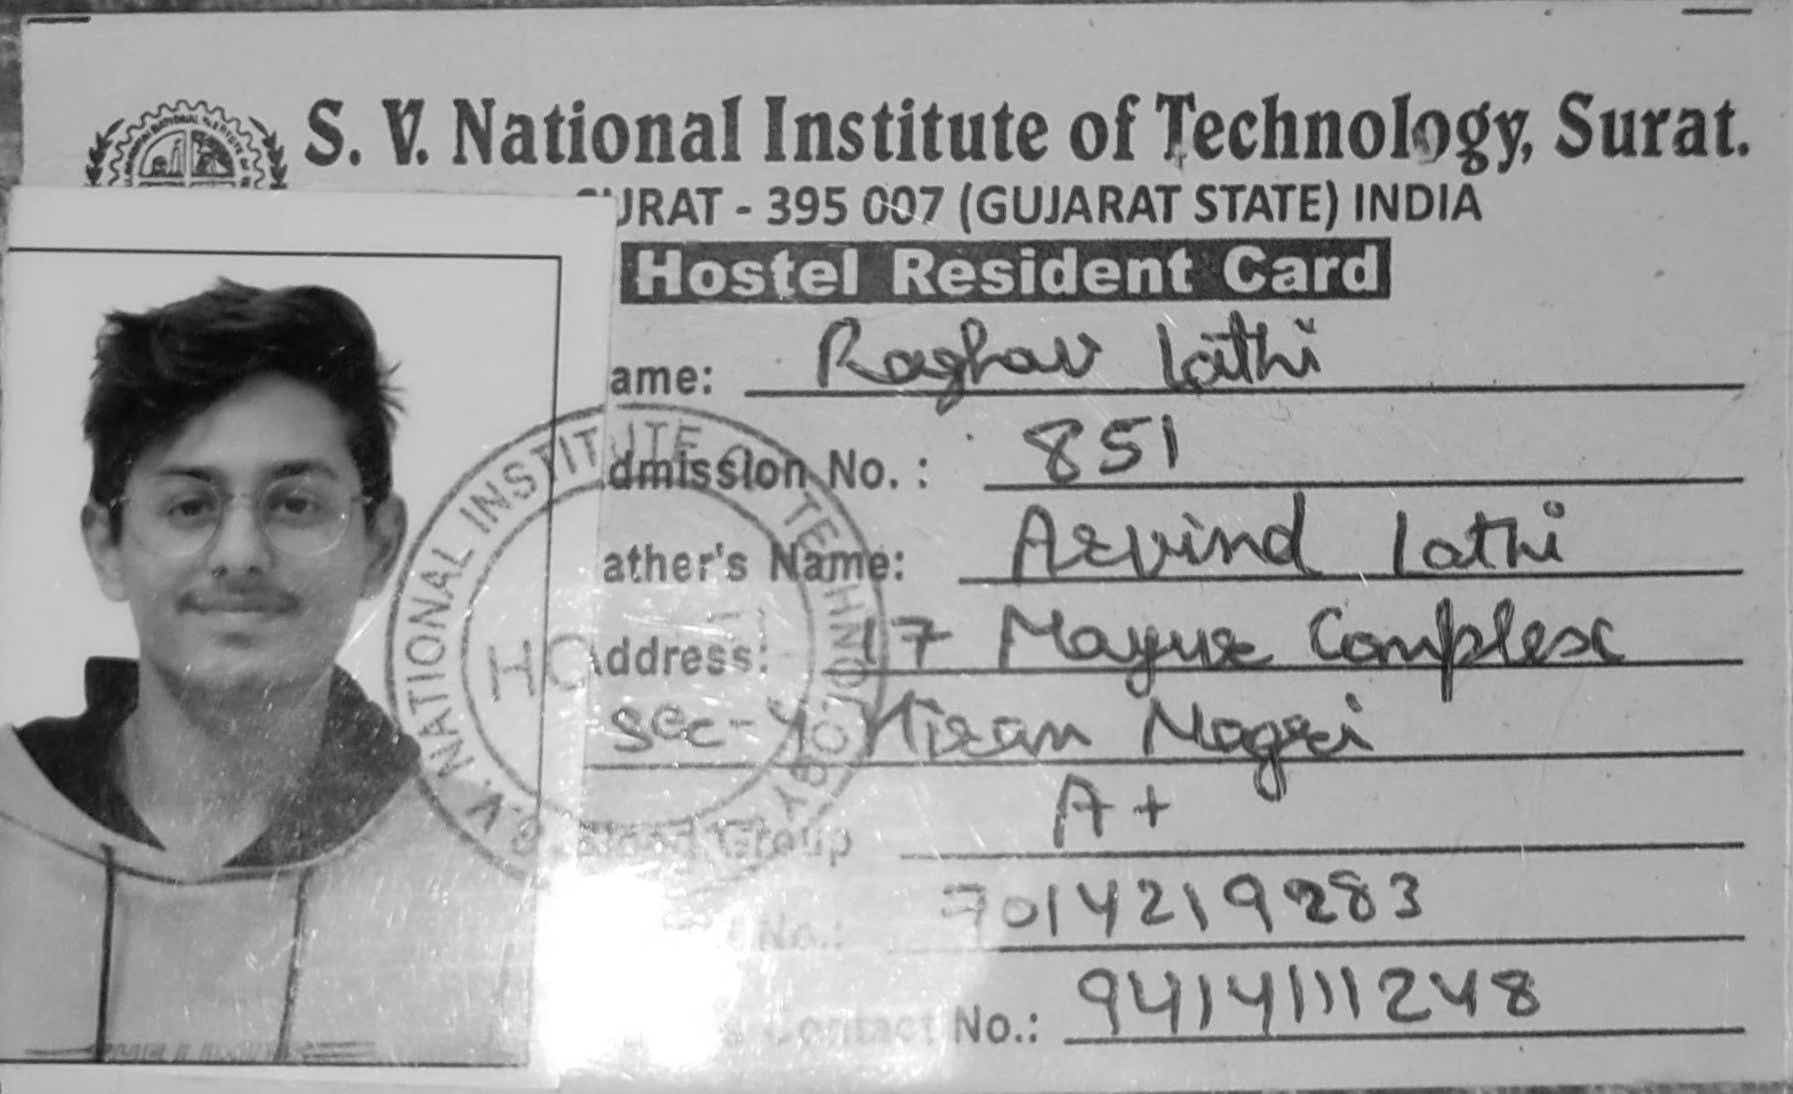 S. V. National Institute of Technology, Surat.
URAT - 395 007 (GUJARAT STATE) INDIA
Hostel Resident Card
ame: Raghav Lathi
dmission No. : 851
ather's Name: Arvind Lathi
ddress: 17 Mayur Complex
Sec-4 Hiran Magri
Blood Group A+
No.: 7014219283
Contact No.: 9414111248
S.V. NATIONAL INSTITUTE OF TECHNOLOGY
HO